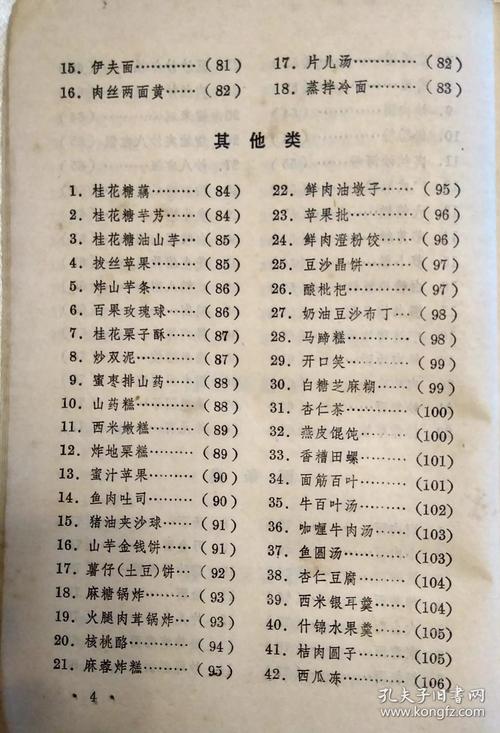 15．伊夫面…………（81）
16．肉丝两面黄……（82）
17．片儿汤…………（82）
18．蒸拌冷面………（83）
其他类
1．桂花糖藕………（84）
2．桂花糖芋艿……（84）
3．桂花糖油山芋…（85）
4．拔丝苹果………（85）
5．炸山芋条………（86）
6．百果玫瑰球……（86）
7．桂花栗子酥……（87）
8．炒双泥…………（87）
9．蜜枣排山药……（88）
10．山药糕…………（88）
11．西米嫩糕………（89）
12．炸地栗糕………（89）
13．蜜汁苹果………（90）
14．鱼肉吐司………（90）
15．猪油夹沙球……（91）
16．山芋金钱饼……（91）
17．薯仔(土豆)饼…（92）
18．麻糖锅炸………（93）
19．火腿肉茸锅炸…（93）
20．核桃酪…………（94）
21．麻蓉炸糕………（95）
22．鲜肉油墩子……（95）
23．苹果批…………（96）
24．鲜肉澄粉饺……（96）
25．豆沙晶饼………（97）
26．酿枇杷…………（97）
27．奶油豆沙布丁…（98）
28．马蹄糕…………（98）
29．开口笑…………（99）
30．白糖芝麻糊……（99）
31．杏仁茶…………（100）
32．燕皮馄饨………（100）
33．香糟田螺………（101）
34．面筋百叶………（101）
35．牛百叶汤………（102）
36．咖喱牛肉汤……（103）
37．鱼圆汤…………（103）
38．杏仁豆腐………（104）
39．西米银耳羹……（104）
40．什锦水果羹……（105）
41．桔肉圆子………（105）
42．西瓜冻…………（106）
• 4 •
孔夫子旧书网
www.kongfz.com